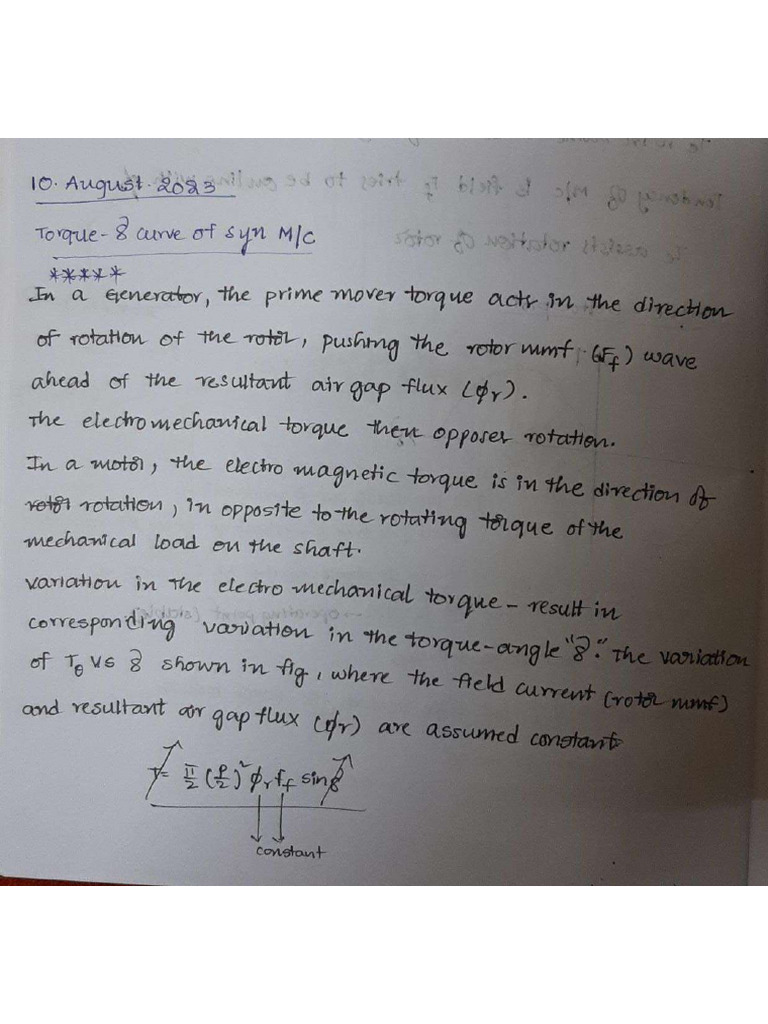 10. August. 2023
Torque-δ curve of syn M/C
*****
In a Generator, the prime mover torque acts in the direction
of rotation of the rotor, pushing the rotor mmf (Ff) wave
ahead of the resultant air gap flux (ϕr).
The electromechanical torque then opposes rotation.
In a motor, the electro magnetic torque is in the direction of
rotor rotation, in opposite to the rotating torque of the
mechanical load on the shaft.
Variation in the electro mechanical torque - result in
corresponding variation in the torque-angle "δ". The variation
of Te vs δ shown in fig, where the field current (rotor mmf)
and resultant air gap flux (ϕr) are assumed constant
T = π/2 (P/2)² ϕr Ff sin δ
constant